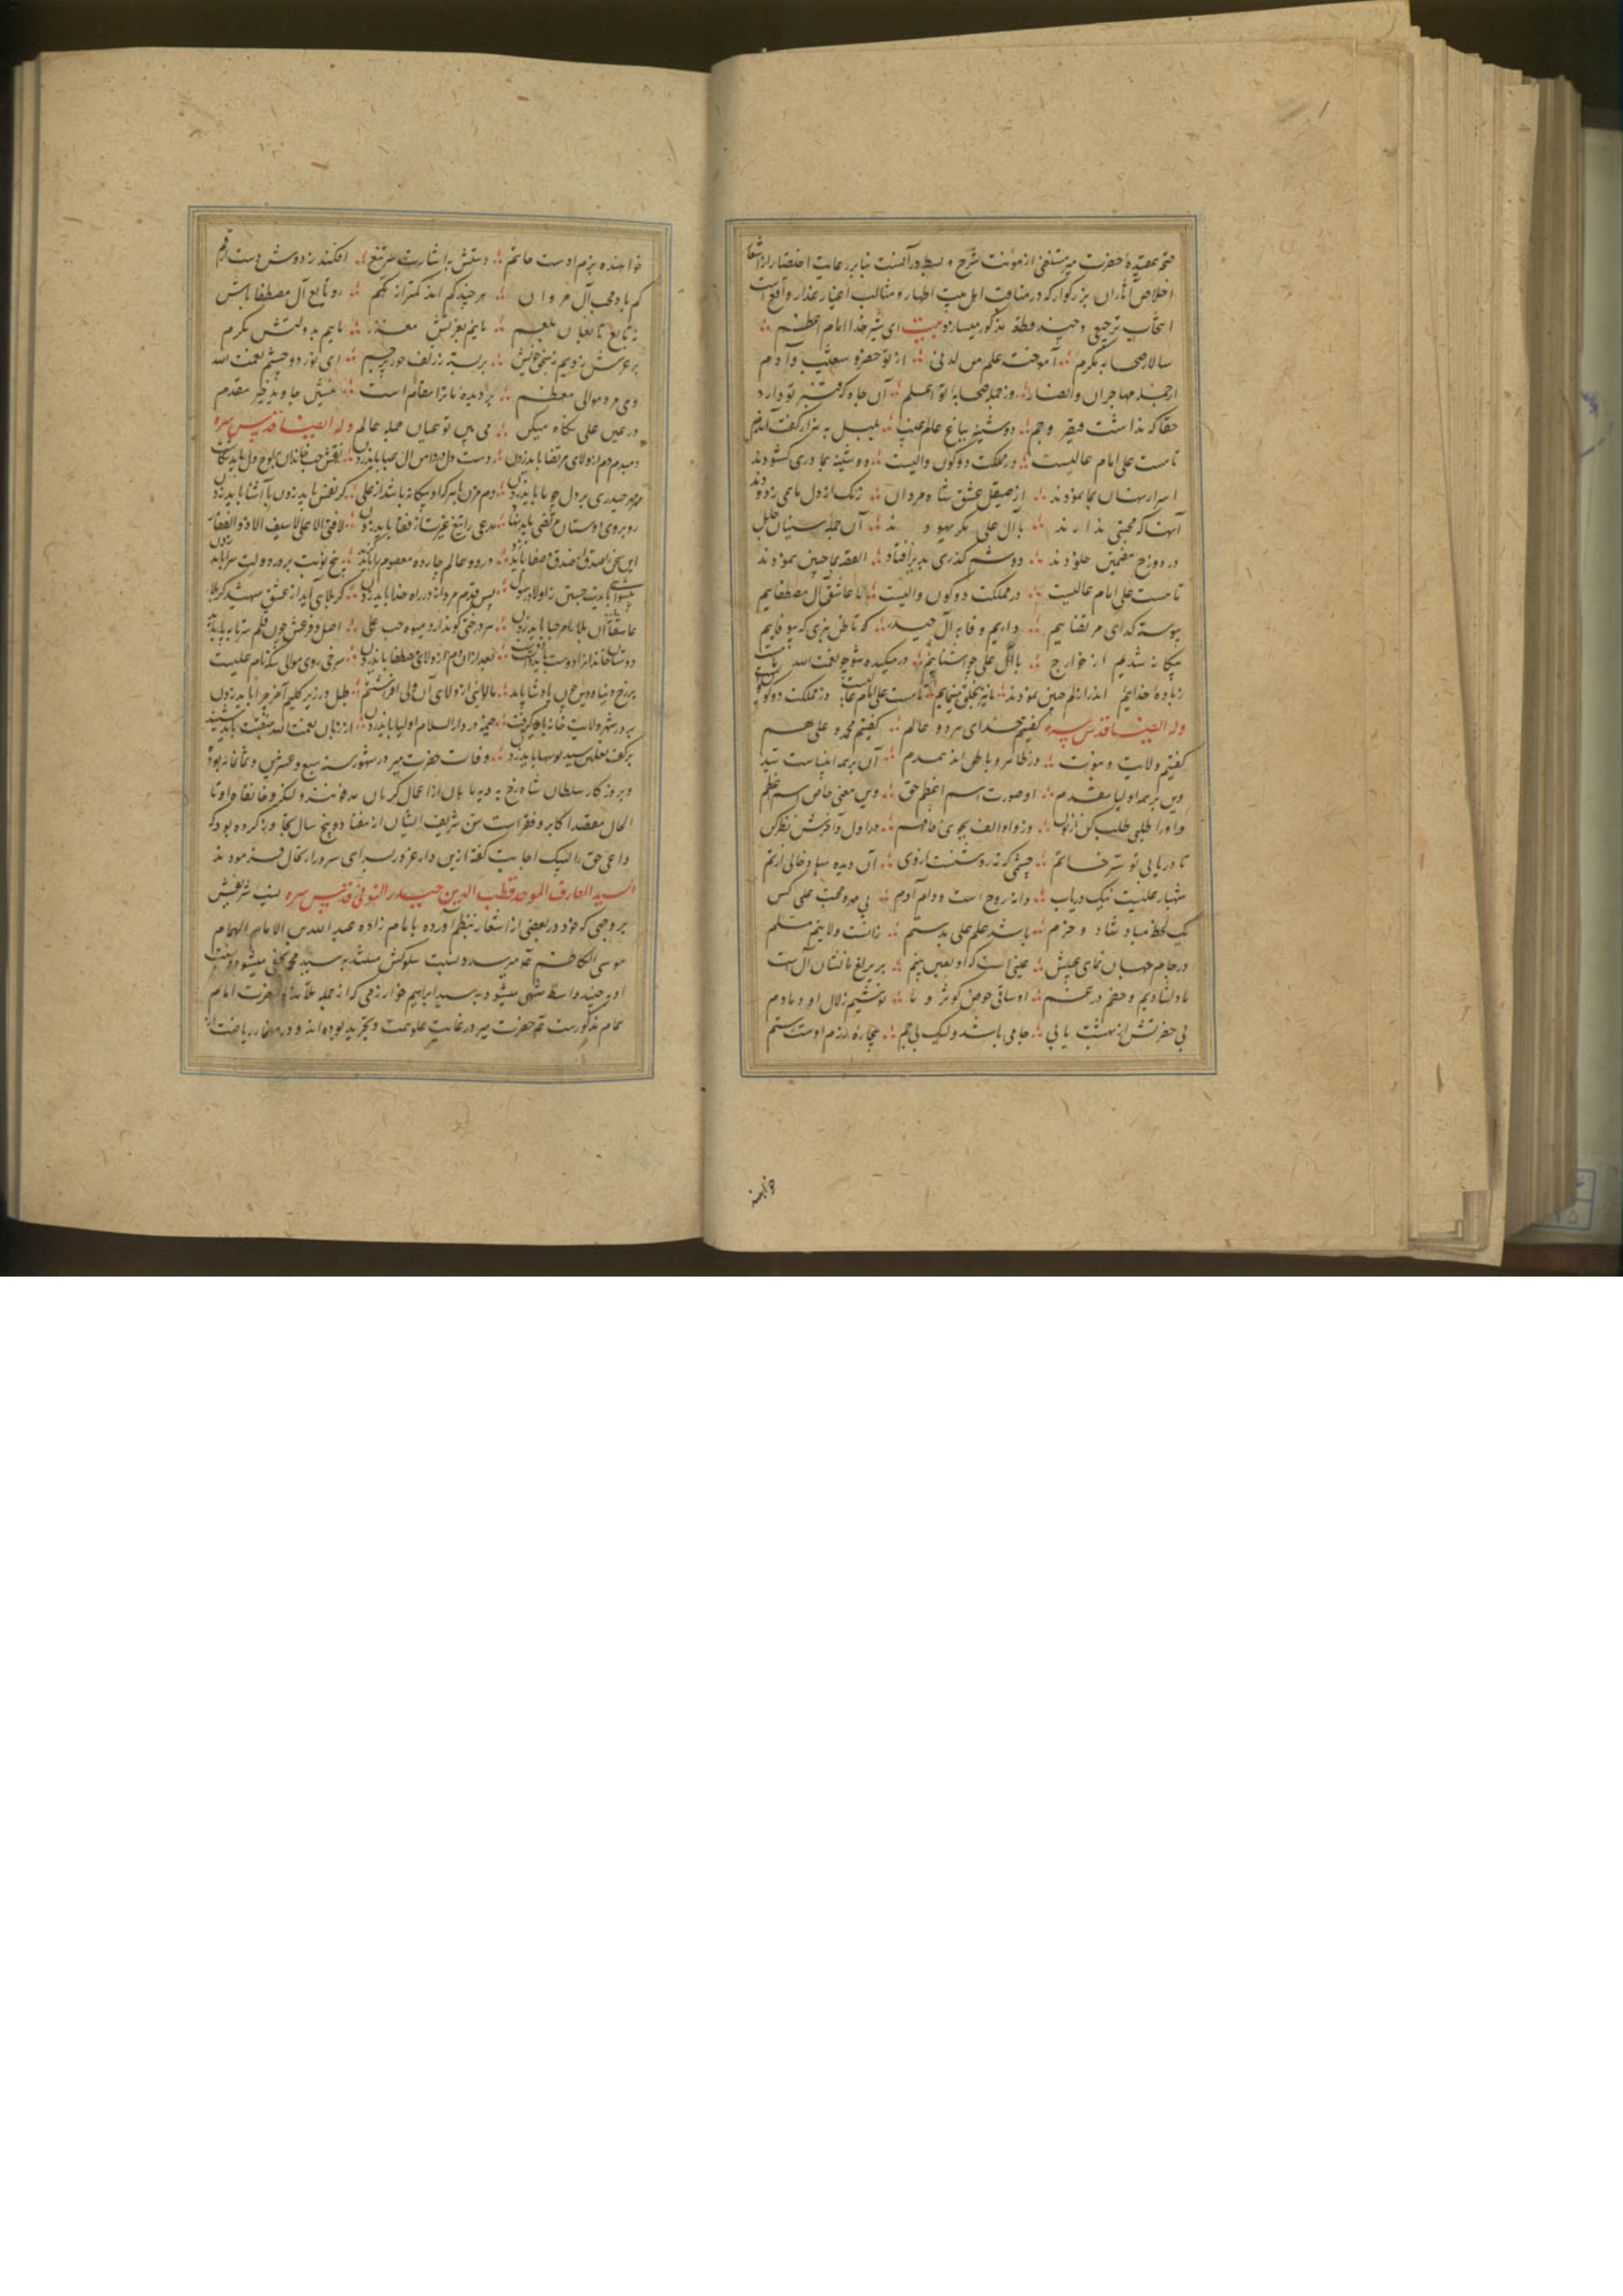 صحه عقیدهٔ حضرت میر مستغنی از مؤنت شرح و بسط در آنست بنابر رعایت اختصار از اشعار
اخلاص آثار آن بزرگوار که در مناقب اهل بیت اطهار و مثالب اغیار غدار واقع است
انتخاب ترجیعی و چند قطعه مذکور میسازد بیت ای شیر خدا امام اعظم
سالار صحابهٔ مکرم آموخت علم من لدنی از تو خضر و شعیب و آدم
از جمله مهاجران و انصار وز جمله صحابه تو اعلم آن جاه که قنبر تو دارد
حقا که نداشت قیصر و جم دوشینه بباغ عالم غیب بلبل به هزار گفت آندم
تا مست علی امام عالیست در مملکت دو کون والیست دوشینه بما دری گشودند
اسرار نهان بما نمودند از صیقل عشق شاه مردان زنگ از دل ما همی زدودند
آنها که محبتی ندارند با آل علی مگر یهودند آن جمله سنیان جاهل
در دوزخ مقیمین خلودند دوشم گذری بدیر افتاد القصه بما چنین نمودند
تا مست علی امام عالیست در مملکت دو کون والیست ما عاشق آل مصطفاییم
پیوسته گدای مرتضاییم داریم وفا به آل حیدر که تا ظن نبری که بیوفاییم
بیگانه شدیم از خوارج با آل علی چو آشناییم در میکده شو چو نعمت الله
زیاده خداییم اندر ازلم چنین نمودند تا مست علی امام عالیست در مملکت دو کون
وله ایضا قدس سره گفتیم خدای هر دو عالم گفتیم محمد و علی هم
گفتیم ولایت و نبوت در ظاهر و باطن اند همدم آن بر همه انبیاست سید
وین بر همه اولیا مقدم او صورت اسم اعظم حق وین معنی خاص اسم اعظم
واو را طلبی طلب کن از لو وز واو الف بجوی فافهم در اول و آخرش نظر کن
تا دریابی تو سر خاتم چشمی که نه روشنست از وی آن دیده مباد خالی از نم
شهباز علیست نیک دریاب دانه روح است و دام آدم بی مهر و محبت علی کس
یک لحظه مباد شاد و خرم باشد علم علی بدستم زانست ولایتم مسلم
در جام جهان نمای عینش عینی است که او بعین بینم بر یرلغ ما نشان آل است
ما دلشادیم و خصم در غم او ساقی حوض کوثر و ما نوشیم زلال او دمادم
بی حضرتش از بهشت یابی جامی باشد ولیک بی جم بیچارهٔ رزم اوست رستم
خواهنده
خواهنده بزم اوست حاتم دستش به اشارت سر تیغ افکند ز دوش دست ارقم
گم باد محب آل مروان هر چند گم اند کمتر از گم رو تابع آل مصطفا باش
نه تابع تابعان بلعم مایم بعزتش معزز مایم بدولتش مکرم
بر عرش زدیم پنج نوبتش بر بسته ز زلف حور پرچم ای نور دو چشم نعمت الله
وی مرد موالی معظم بر دیدهٔ ما ترا مقام است بنشین جاوید خیر مقدم
در عین علی نگاه میکن می بین تو عیان جمله عالم وله ایضا قدس سره
دمبدم دم از ولای مرتضا باید زدن دست دل در دامن آل عبا باید زدن نقش حب خاندان بر لوح جان باید نگاشت
مهر مهر حیدری بر دل چو ما باید زدن دم مزن با هر که او بیگانه باشد از علی گر نفس باید زدن با آشنا باید زدن
روبروی دوستان مرتضی باید نهاد مدعی را تیغ غیرت از قفا باید زدن لا فتی الا علی لا سیف الا ذوالفقار
این سخن را صدق و صفا باید زدن در دو عالم چارده معصوم را باید گزید پنج نوبت بر در دولت سرا باید زدن
پیشوایی بایدت جستن ز اولاد رسول پس قدم مردانه در راه خدا باید زدن گر بلایی آید از عشق شهید کربلا
عاشقانه آن بلا را مرحبا باید زدن هر درختی کو ندارد میوهٔ حب علی اصل و فرعش چون قلم سر تا به پا باید زدن
دوستان خاندانرا دوست باید داشت بعد از آن دم از ولای مصطفا باید زدن سرخی روی موالی سکه نام علیست
بر رخ دنیا و دین چون پادشا باید زدن ما لوایی از ولای آن ولی افراشتیم طبل در زیر گلیم آخر چرا باید زدن
بر در شهر ولایت خانه باید گرفت خیمه در دار السلام اولیا باید زدن از زبان نعمت الله منقبت باید شنید
بر کف نعلین سید بوسها باید زدن وفات حضرت میر در شهور سنه سبع و عشرین و ثمانمائه بود
و بروزگار سلطان شاه رخ به ماهان از اعمال کرمان مدفونند و لنگر و خانقاه او تا
الحال معتقد اکابر و فقرا است سن شریف ایشان از هفتاد و پنج سال تجاوز کرده بود که
داعی حق را لبیک اجابت گفته ازین دار غرور بسرای سرور ارتحال فرمودند
السید العارف الموحد قطب الدین حیدر التونی قدس سره نسب شریفش
بر وجهی که خود در بعضی از اشعار بنظم آورده بامام زاده عبد الله بن الامام الهمام
موسی الکاظم ع میرسد و نسبت سلوکش به سید محمد میشود و نسبت
او به چند واسطه منتهی میشود به سید ابراهیم خوارزمی که از جمله تلامذهٔ حضرت امام
تمام مذکورست و حضرت میر در غایت علو همت و تجرید بوده اند و در مضمار ریاضت از